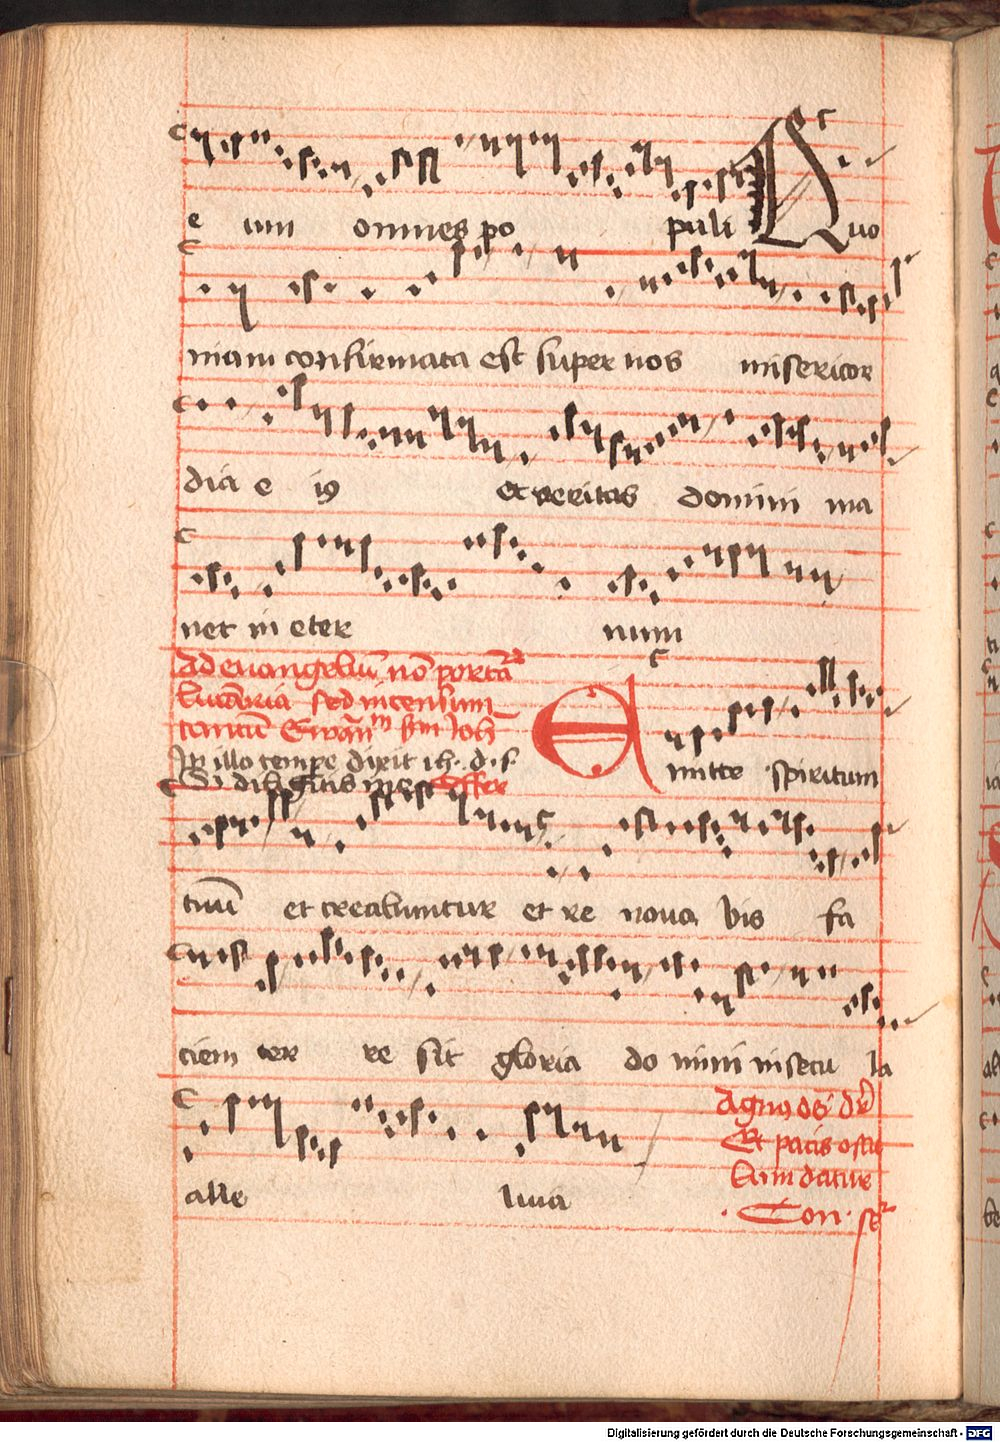 e um omnes po puli Quo
niam confirmata est super nos misericor
dia e ius et veritas domini ma
net in eter num
Ad euangeliū nō portāt
sed incensum
tantū Ewān scdm Joh
In illo tempore dixit ih. d. s.
Si diligitis me Offer
Emitte spiritum
tuū et creabuntur et re noua bis fa
ciem ter re sit gloria do mini in secu la
alle luia
Agnus dei dr
Et pacis oscu
lum datur
Con se
Digitalisierung gefördert durch die Deutsche Forschungsgemeinschaft - DFG